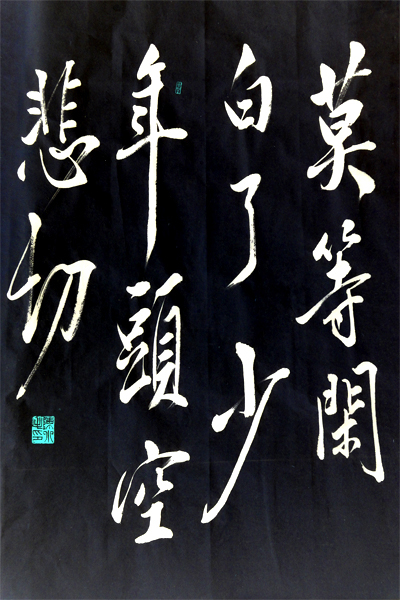 莫等閑
白了少
年頭空
悲切